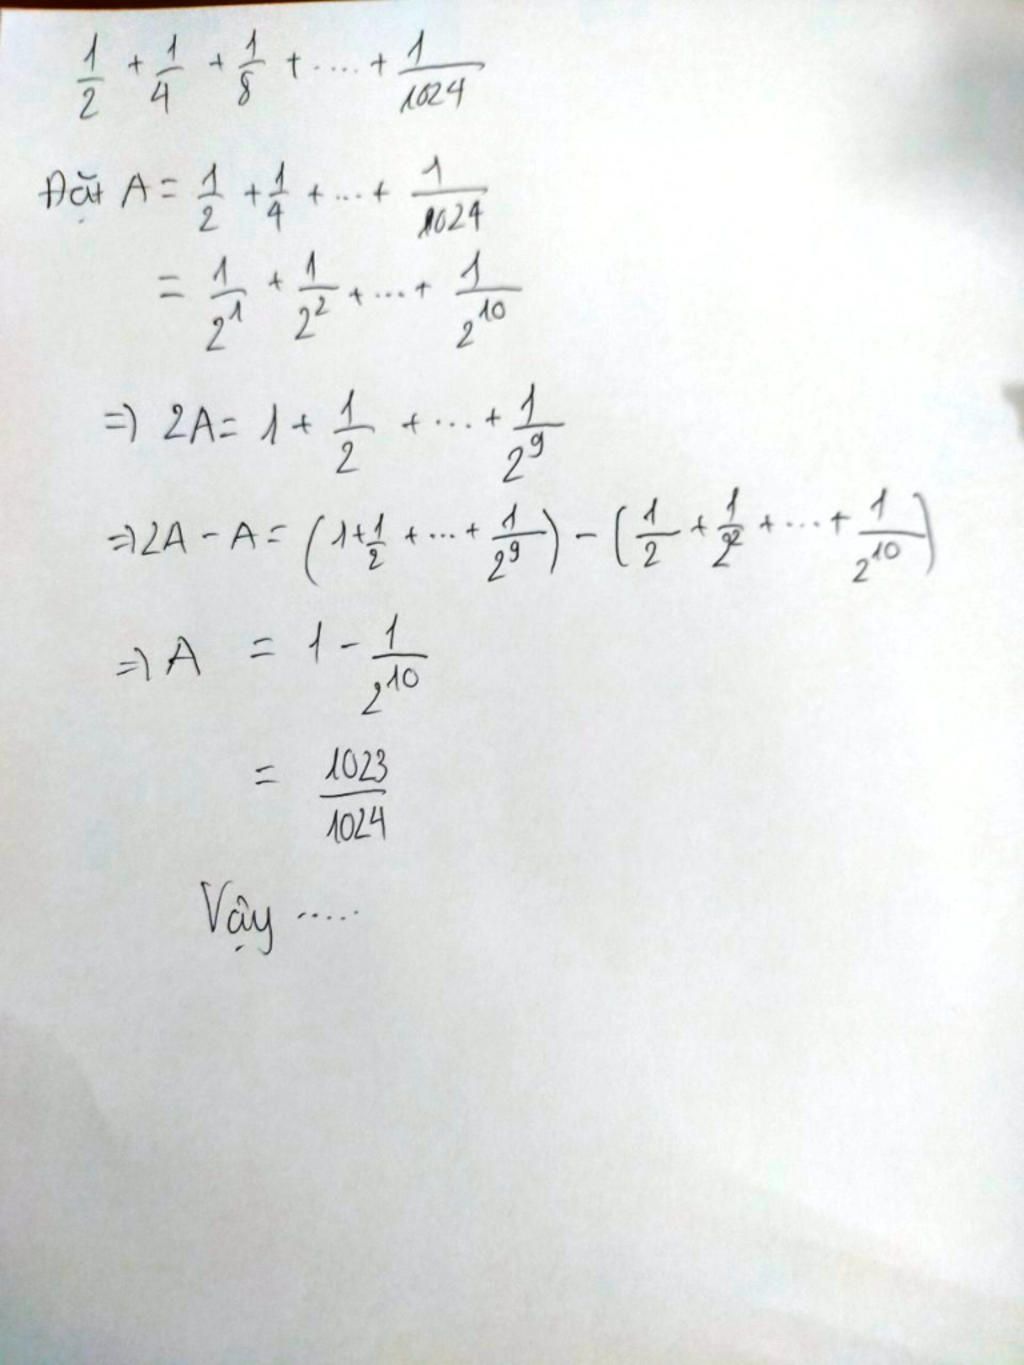 1/2 + 1/4 + 1/8 + ..... + 1/1024
Đặt A = 1/2 + 1/4 + ... + 1/1024
= 1/2^1 + 1/2^2 + ... + 1/2^10
=> 2A = 1 + 1/2 + ... + 1/2^9
=> 2A - A = (1 + 1/2 + ... + 1/2^9) - (1/2 + 1/2^2 + ... + 1/2^10)
=> A = 1 - 1/2^10
= 1023/1024
Vậy .....